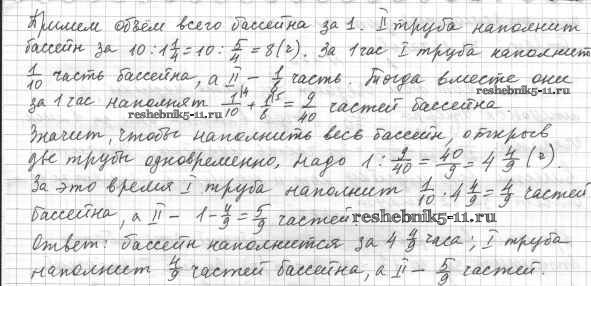 Примем объём всего бассейна за 1. II труба наполнит
бассейн за 10 : 1 1/4 = 10 : 5/4 = 8 (г). За 1 час I труба наполнит
1/10 часть бассейна, а II – 1/8 часть. Тогда вместе они
за 1 час наполнят 1/10 \4 + 1/8 \5 = 9/40 частей бассейна.
Значит, чтобы наполнить весь бассейн, открыв
две трубы одновременно, надо 1 : 9/40 = 40/9 = 4 4/9 (г).
За это время I труба наполнит 1/10 · 4 4/9 = 4/9 частей
бассейна, а II – 1 - 4/9 = 5/9 частей.
Ответ: бассейн наполнится за 4 4/9 часа; I труба
наполнит 4/9 частей бассейна, а II – 5/9 частей.
reshebnik5-11.ru
reshebnik5-11.ru
reshebnik5-11.ru